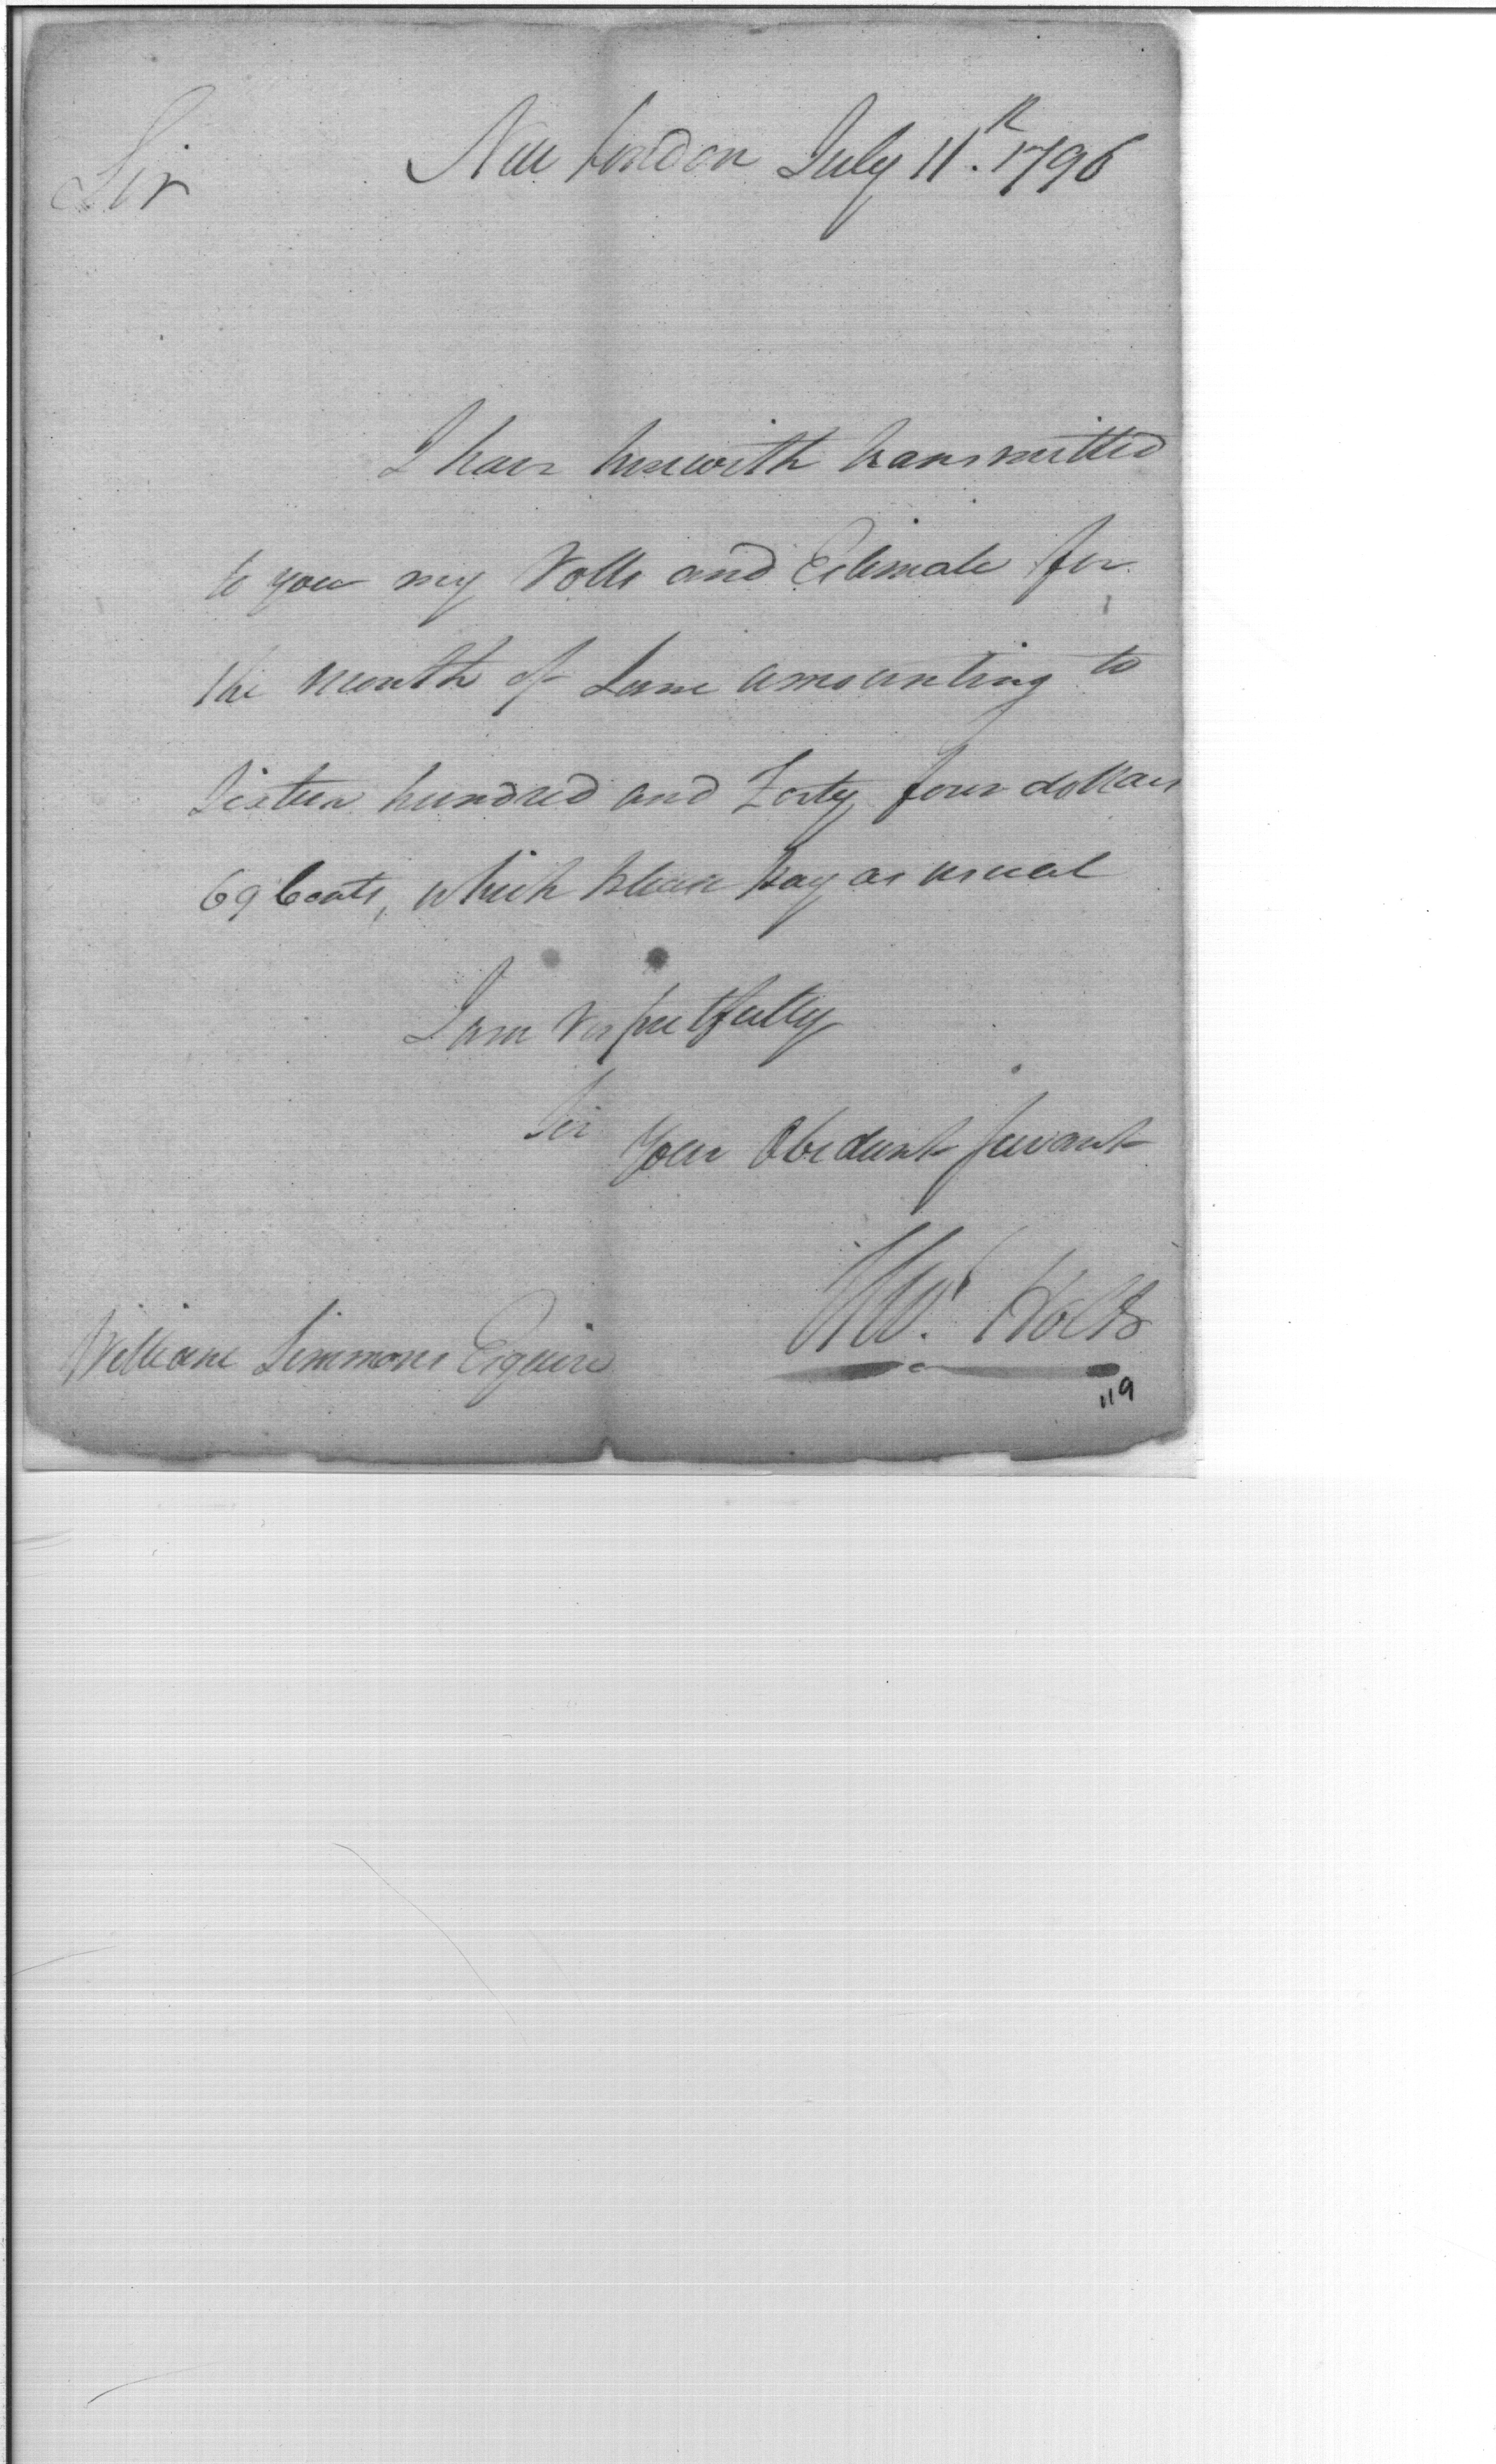 New London July 11th. 1796
Sir
I have herewith transmitted
to you my Rolls and Estimate for
the Month of June amounting to
Sixteen hundred and Forty four dollars
69 Cents, which please pay as usual
I am respectfully
Sir
Your Obedient Servant
Holt
William Simmons Esquire
119